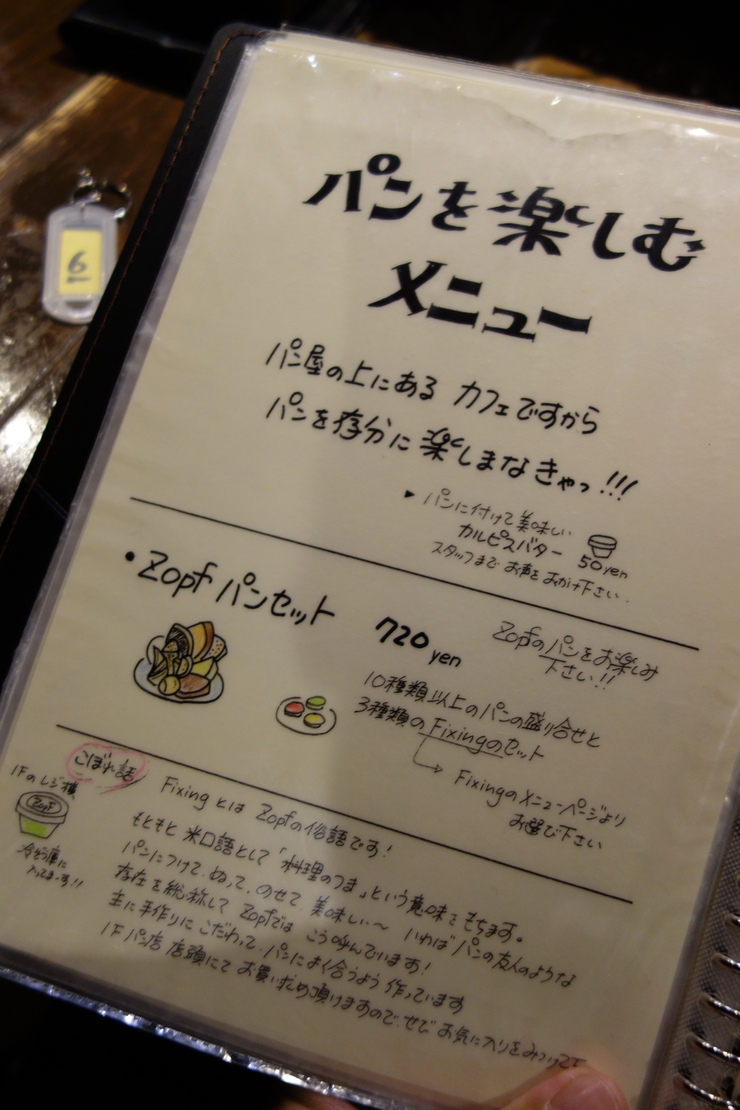 6
パンを楽しむ
メニュー
パン屋の上にある カフェですから
パンを存分に楽しまなきゃっ!!!
▶ パンに付けて美味しい
カルピスバター 50yen
スタッフまで お声をおかけ下さい.
• Zopf パンセット 720 yen
Zopfのパンをお楽しみ
下さい!!
10種類以上のパンの盛り合せと
3種類のFixingのセット
Fixingのメニューページより
お選び下さい
こぼれ話
1Fのレジ横
Zopf
冷ぞう庫に
入ってまーす!!
Fixing とは Zopfの俗語です!
もともと 米口語として「料理のつま」という意味をもちます。
パンにつけて、ぬって、のせて 美味しい〜 いわば パンの友人のような
存在を総称して Zopfでは こう呼んでいます!
主に手作りにこだわって、パンによく合うよう作っています
1Fパン店 店頭にて お買い求め頂けますので、ぜひ お気に入りをみつけて下